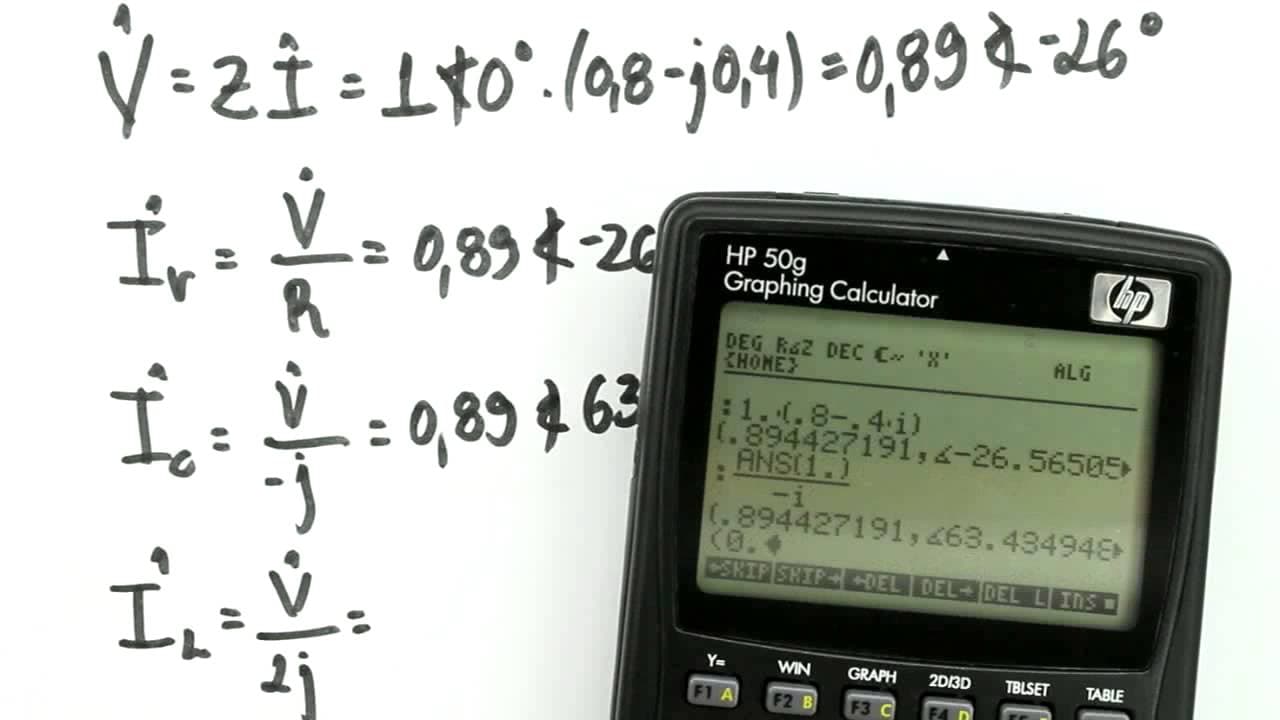 V̂ = Z Î = 1∢0° . (0,8-j0,4) = 0,89∢-26°
İr = V̇/R = 0,89∢-26
İc = V̇/-j = 0,89∢63
İL = V̇/2j =
HP 50g
Graphing Calculator
hp
DEG R∡Z DEC C~ 'X'
{HOME}
ALG
:1.·(.8-.4·i)
(.894427191,∡-26.56505▶
:ANS(1.)
-i
(.894427191,∡63.434948▶
(0.◀
←SKIP SKIP→ ←DEL DEL→ DEL L INS ■
Y= WIN GRAPH 2D/3D TBLSET TABLE
F1 A F2 B F3 C F4 D